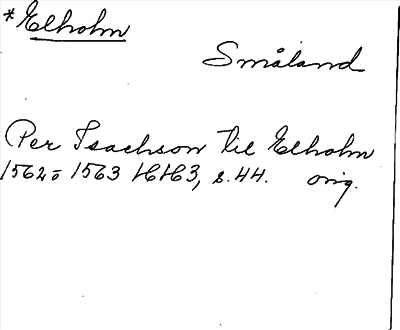 *Elholm
Småland
Per Isachson til Elholm
1562 o 1563 HH3, s. 44. orig.